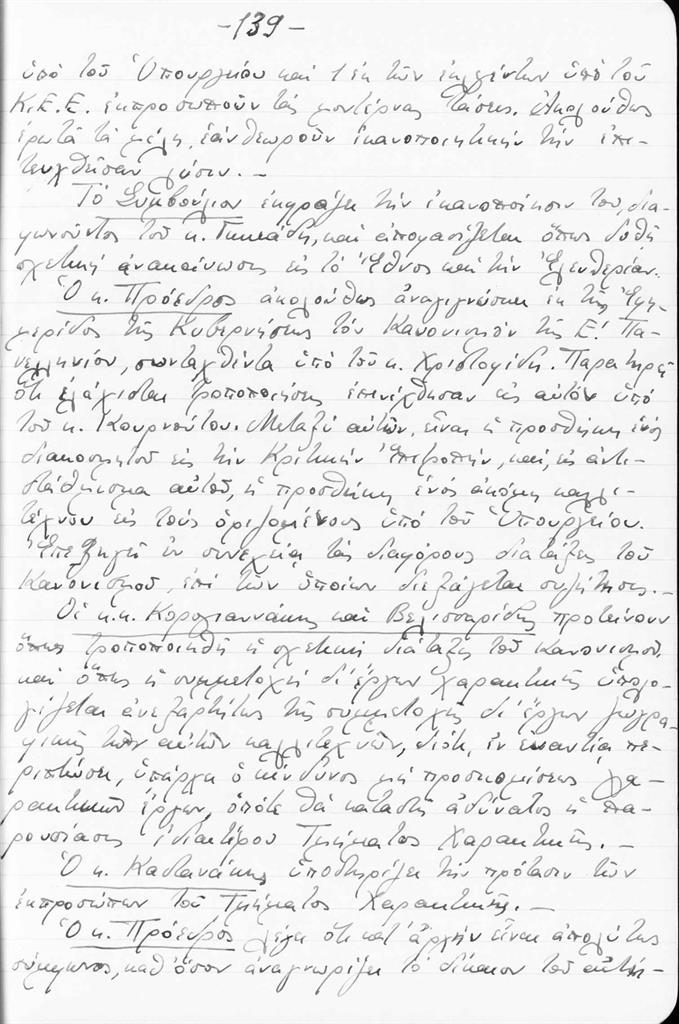 -139-
ὑπὸ τοῦ Ὑπουργείου καὶ 1 ἐκ τῶν ἐκλεγέντων ὑπὸ τοῦ
Κ.Ε.Ε. ἐκπροσωποῦν τὰς μοντέρνας τάσεις. Ἀκολούθως
ἐρωτᾶ τὰ μέλη, ἐὰν θεωροῦν ἱκανοποιητικὴν τὴν ἐπι-
τευχθεῖσαν λύσιν. —
Τὸ Συμβούλιον ἐκφράζει τὴν ἱκανοποίησίν του, δια-
φωνοῦντος τοῦ κ. , καὶ ἀποφασίζεται ὅπως δοθῆ
σχετικὴ ἀνακοίνωσις εἰς τὸ Ἔθνος καὶ τὴν Ἐλευθερίαν.
Ὁ κ. Πρόεδρος ἀκολούθως ἀναγιγνώσκει ἐκ τῆς Ἐφη-
μερίδος τῆς Κυβερνήσεως τὸν Κανονισμὸν τῆς Ε! Πα-
νελληνίου, συνταχθέντα ὑπὸ τοῦ κ. Χριστοφίδη. Παρατηρεῖ
ὅτι ἐλάχισται τροποποιήσεις ἐπηνέχθησαν εἰς αὐτὸν ὑπὸ
τοῦ κ. Κουρνούτου. Μεταξὺ αὐτῶν, εἶναι ἡ προσθήκη ἑνὸς
διακοσμητοῦ εἰς τὴν Κριτικὴν Ἐπιτροπήν, καί, εἰς ἀντι-
στάθμισμα αὐτοῦ, ἡ προσθήκη ἑνὸς ἀκόμη καλλι-
τέχνου εἰς τοὺς ὁριζομένους ὑπὸ τοῦ Ὑπουργείου.
Ἐπεξηγεῖ ἐν συνεχείᾳ τὰς διαφόρους διατάξεις τοῦ
Κανονισμοῦ, ἐπὶ τῶν ὁποίων διεξάγεται συζήτησις. —
Οἱ κ.κ. Κορογιαννάκης καὶ Βελισσαρίδης προτείνουν
ὅπως τροποποιηθῆ ἡ σχετικὴ διάταξις τοῦ Κανονισμοῦ,
καὶ ὅπως ἡ συμμετοχὴ δι' ἔργων χαρακτικῆς ὑπολο-
γίζεται ἀνεξαρτήτως τῆς συμμετοχῆς δι' ἔργων ζωγρα-
φικῆς τῶν αὐτῶν καλλιτεχνῶν, διότι, ἐν ἐναντίᾳ πε-
ριπτώσει, ὑπάρχει ὁ κίνδυνος μὴ προσκομίσεως χα-
ρακτικῶν ἔργων, ὁπότε θὰ καταστῆ ἀδύνατος ἡ πα-
ρουσίασις ἰδιαιτέρου Τμήματος Χαρακτικῆς. —
Ὁ κ. Καστανάκης ὑποστηρίζει τὴν πρότασιν τῶν
ἐκπροσώπων τοῦ Τμήματος Χαρακτικῆς. —
Ὁ κ. Πρόεδρος λέγει ὅτι κατ' ἀρχὴν εἶναι ἀπολύτως
σύμφωνος, καθ' ὅσον ἀναγνωρίζει τὸ δίκαιον τοῦ αἰτή-